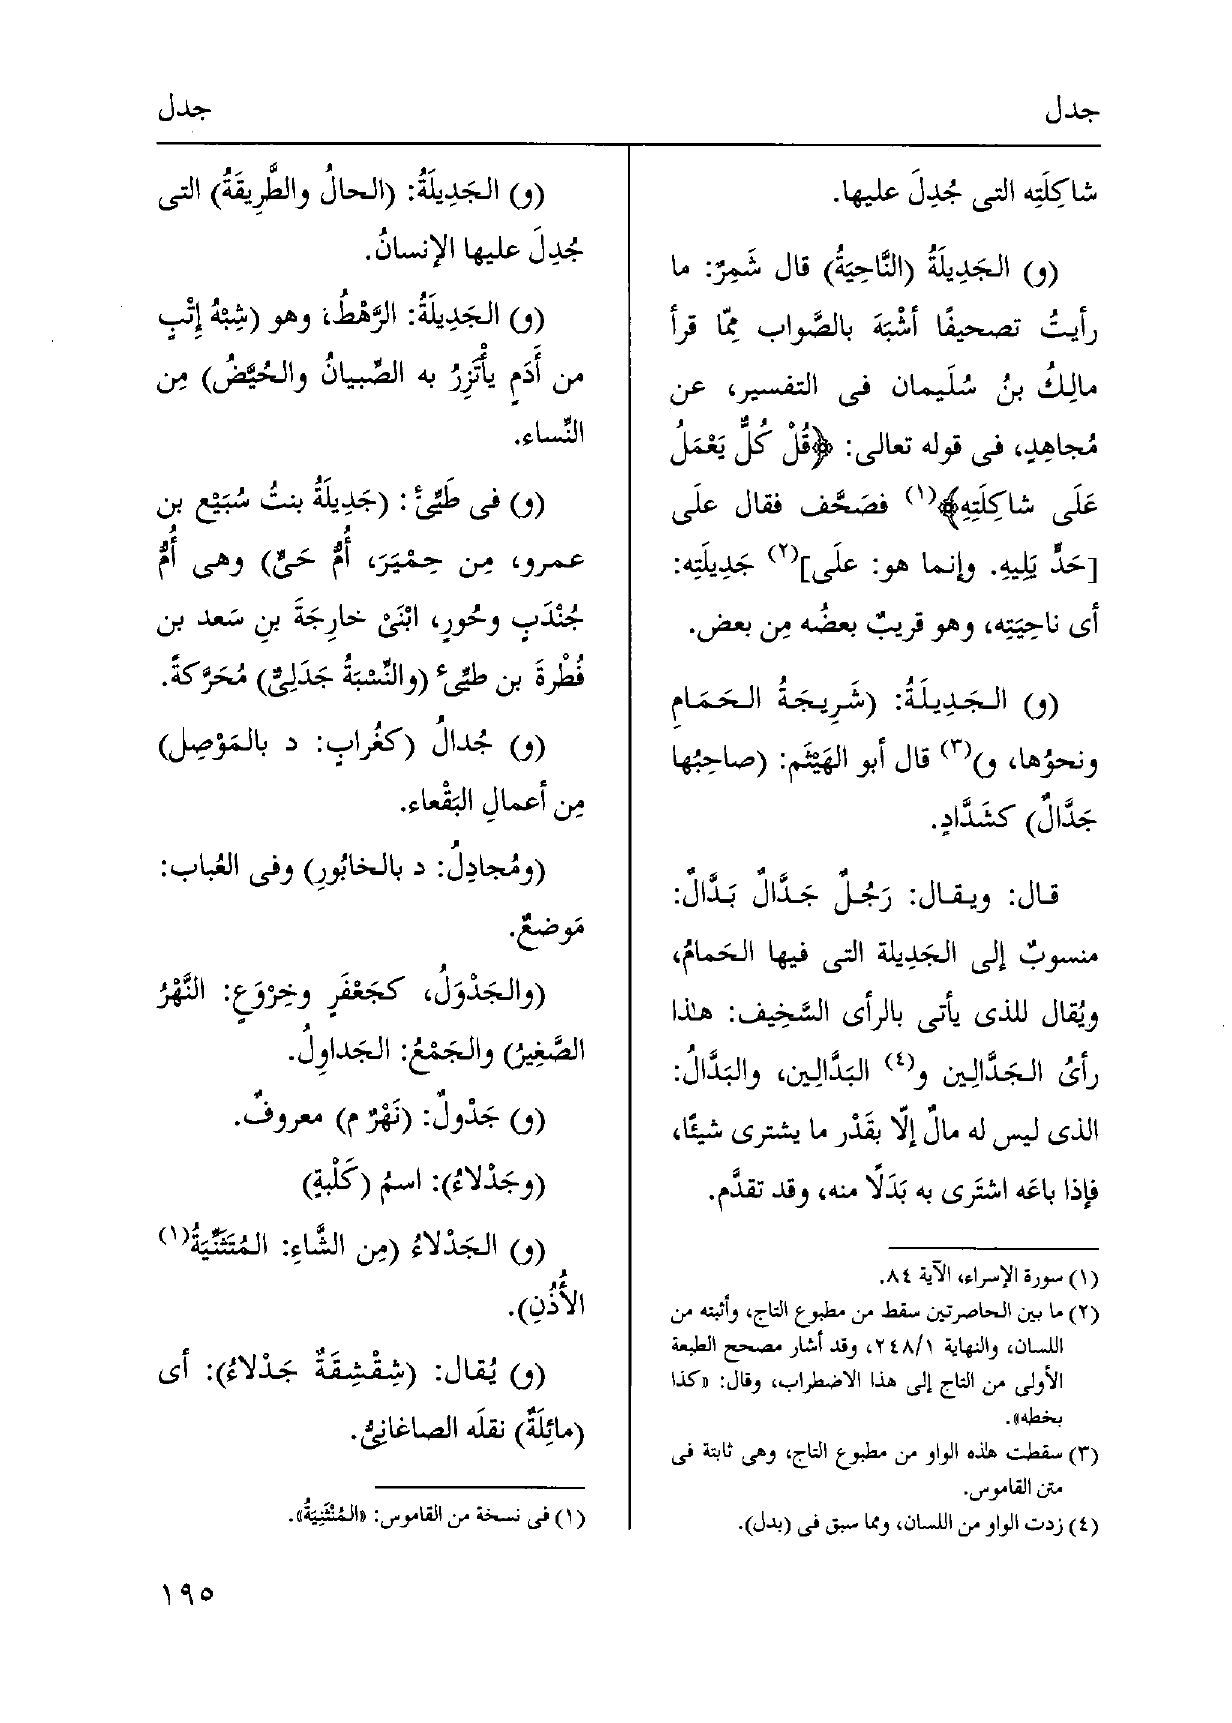 جدل
جدل
شاكِلَتِه التى جُدِلَ عليها.
(و) الجَدِيلَةُ (النَّاحِيَةُ) قال شَمِرٌ: ما
رأيتُ تصحيفًا أشْبَهَ بالصَّواب مِمّا قرأ
مالِكُ بنُ سُلَيمان فى التفسير، عن
مُجاهِدٍ، فى قوله تعالى: ﴿قُلْ كُلٌّ يَعْمَلُ
عَلَى شاكِلَتِهِ﴾(١) فصَحَّف فقال علَى
[حَدٍّ يَلِيهِ. وإنما هو: علَى](٢) جَدِيلَتِه:
أى ناحِيَتِه، وهو قريبٌ بعضُه مِن بعض.
(و) الجَدِيلَةُ: (شَرِيجَةُ الحَمَامِ
ونحوُها، و)(٣) قال أبو الهَيْثَم: (صاحِبُها
جَدَّالٌ) كشَدَّادٍ.
قال: ويقال: رَجُلٌ جَدَّالٌ بَدَّالٌ:
منسوبٌ إلى الجَدِيلة التى فيها الحَمامُ،
ويُقال للذى يأتى بالرأى السَّخِيف: هذا
رأىُ الجَدَّالِين و(٤) البَدَّالِين، والبَدَّالُ:
الذى ليس له مالٌ إلّا بقَدْر ما يشترى شيئًا،
فإذا باعَه اشتَرى به بَدَلًا منه، وقد تقدَّم.
(١) سورة الإسراء، الآية ٨٤.
(٢) ما بين الحاصرتين سقط من مطبوع التاج، وأثبته من
اللسان، والنهاية ٢٤٨/١، وقد أشار مصحح الطبعة
الأولى من التاج إلى هذا الاضطراب، وقال: «كذا
بخطه».
(٣) سقطت هذه الواو من مطبوع التاج، وهى ثابتة فى
متن القاموس.
(٤) زدت الواو من اللسان، ومما سبق فى (بدل).
(و) الجَدِيلَةُ: (الحالُ والطَّرِيقَةُ) التى
جُدِلَ عليها الإنسانُ.
(و) الجَدِيلَةُ: الرَّهْطُ، وهو (شِبْهُ إتْبٍ
من أَدَمٍ يأْتَزِرُ به الصِّبيانُ والحُيَّضُ) مِن
النِّساء.
(و) فى طَيِّئٍ: (جَدِيلَةُ بنتُ سُبَيْع بن
عمرو، مِن حِمْيَرَ، أُمُّ حَىٍّ) وهى أُمُّ
جُنْدَبٍ وحُورٍ، ابْنَىْ خارِجَةَ بنِ سَعد بن
فُطْرةَ بن طَيِّىء (والنِّسْبَةُ جَدَلِىٌّ) مُحَرَّكةً.
(و) جُدالُ (كغُرابٍ: د بالمَوْصِل)
مِن أعمالِ البَقْعاء.
(ومُجادِلُ: د بالخابُورِ) وفى العُباب:
مَوضعٌ.
(والجَدْوَلُ، كجَعْفَرٍ وخِرْوَعٍ: النَّهْرُ
الصَّغِيرُ) والجَمْعُ: الجَداوِلُ.
(و) جَدْولٌ: (نَهْرٌ م) معروفٌ.
(وجَدْلاءُ): اسمُ (كَلْبةٍ)
(و) الجَدْلاءُ (مِن الشَّاءِ: المُتَثَنِّيَةُ(١)
الأُذُنِ).
(و) يُقال: (شِقْشِقَةٌ جَدْلاءُ): أى
(مائِلَةٌ) نقلَه الصاغانِىُّ.
(١) فى نسخة من القاموس: «المُنْثَنِيَةُ».
١٩٥